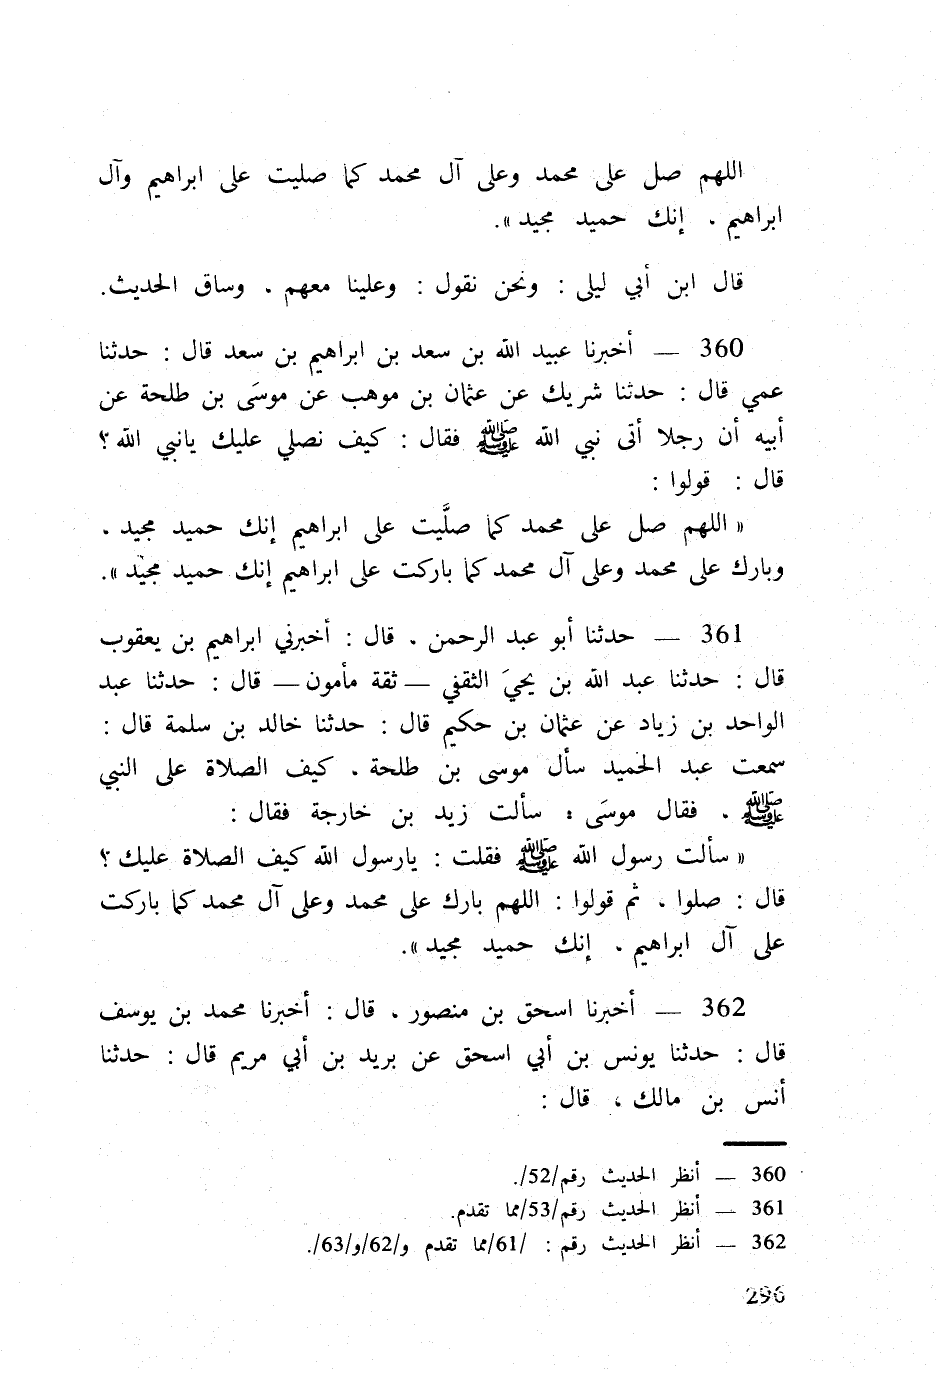 اللهم صل على محمد وعلى آل محمد كما صليت على ابراهيم وآل
ابراهيم . إنك حميد مجيد ».
قال ابن أبي ليلى : ونحن نقول : وعلينا معهم . وساق الحديث.
360 — أخبرنا عبيد الله بن سعد بن ابراهيم بن سعد قال : حدثنا
عمي قال : حدثنا شريك عن عثمان بن موهب عن موسَى بن طلحة عن
أبيه أن رجلا أتى نبي الله ﷺ فقال : كيف نصلي عليك يانبي الله ؟
قال : قولوا :
« اللهم صل على محمد كما صلَّيت على ابراهيم إنك حميد مجيد .
وبارك على محمد وعلى آل محمد كما باركت على ابراهيم إنك حميد مجيد ».
361 — حدثنا أبو عبد الرحمن . قال : أخبرني ابراهيم بن يعقوب
قال : حدثنا عبد الله بن يحيَ الثقفي — ثقة مأمون — قال : حدثنا عبد
الواحد بن زياد عن عثمان بن حكيم قال : حدثنا خالد بن سلمة قال :
سمعت عبد الحميد سأل موسى بن طلحة . كيف الصلاة على النبي
ﷺ . فقال موسَى : سألت زيد بن خارجة فقال :
« سألت رسول الله ﷺ فقلت : يارسول الله كيف الصلاة عليك ؟
قال : صلوا . ثم قولوا : اللهم بارك على محمد وعلى آل محمد كما باركت
على آل ابراهيم . إنك حميد مجيد ».
362 — أخبرنا اسحق بن منصور . قال : أخبرنا محمد بن يوسف
قال : حدثنا يونس بن أبي اسحق عن بريد بن أبي مريم قال : حدثنا
أنس بن مالك ، قال :
360 — أنظر الحديث رقم/52/.
361 — أنظر الحديث رقم/53/مما تقدم.
362 — أنظر الحديث رقم : /61/مما تقدم و/62/و/63/.
296